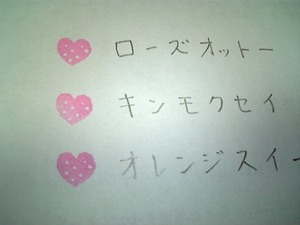 ローズオットー
キンモクセイ
オレンジスイー